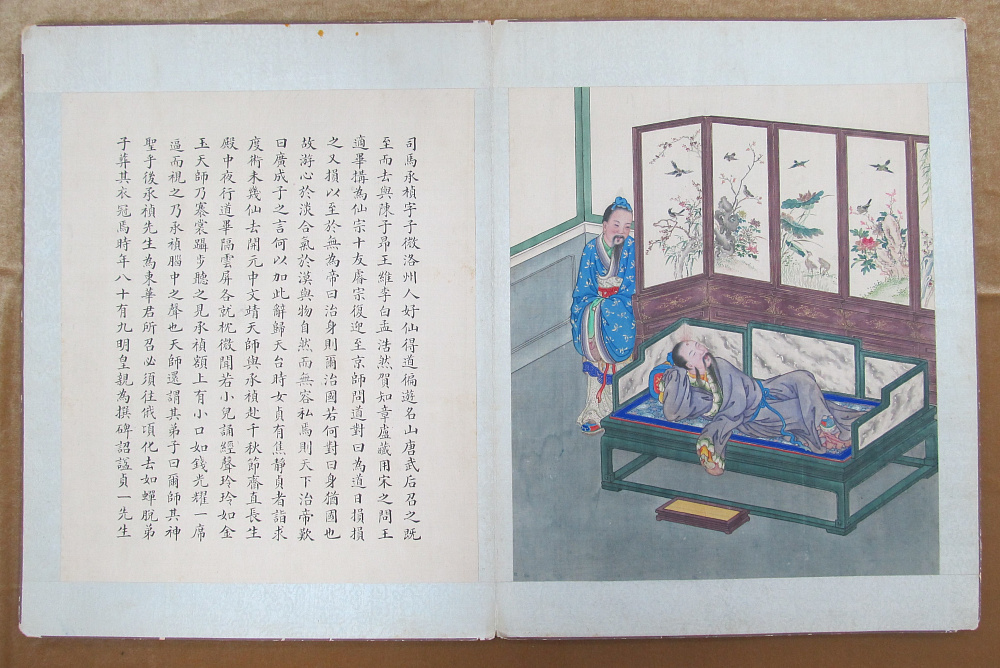 司馬承禎字子微洛州人好仙得道徧遊名山唐武后召之既
至而去與陳子昂王維李白孟浩然賀知章盧藏用宋之問王
適畢搆為仙宗十友睿宗復迎至京師問道對曰為道日損損
之又損以至於無為帝曰治身則爾治國若何對曰身猶國也
故游心於淡合氣於漠與物自然而無容私焉則天下治帝歎
曰廣成子之言何以加此辭歸天台時女貞有焦靜貞者詣求
度術未幾仙去開元中文靖天師與承禎赴千秋節齋直長生
殿中夜行道畢隔雲屏各就枕微聞若小兒誦經聲玲玲如金
玉天師乃褰裳躡步聽之見承禎額上有小口如錢光耀一席
逼而視之乃承禎腦中之聲也天師還謂其弟子曰爾師其神
聖乎後承禎先生為東華君所召必須往俄頃化去如蟬脫弟
子葬其衣冠焉時年八十有九明皇親為撰碑詔諡貞一先生